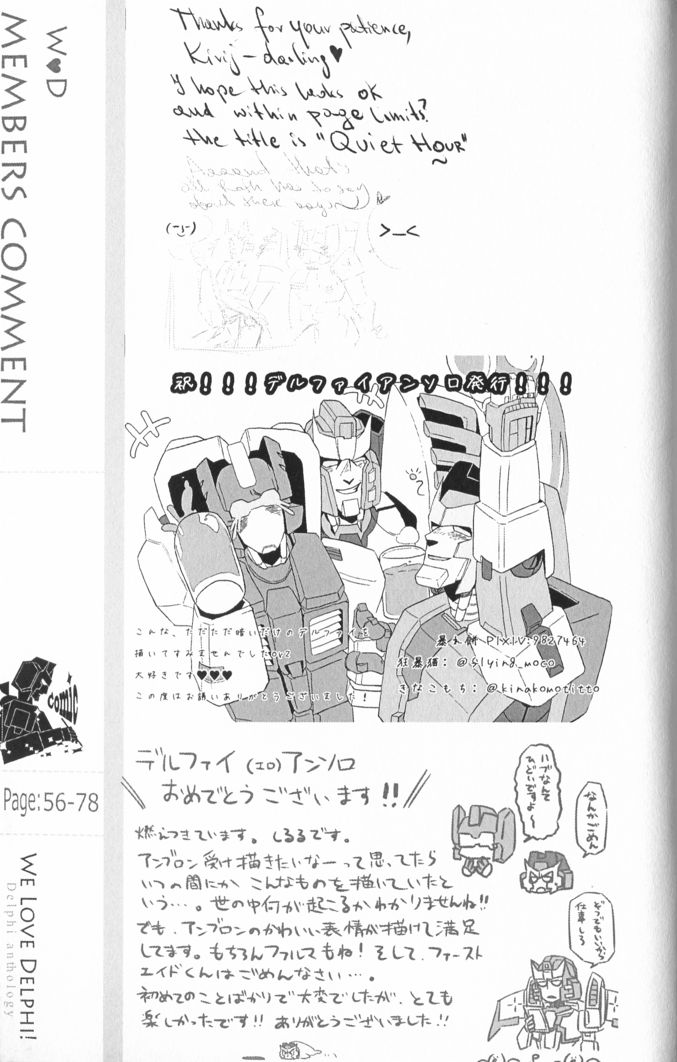 W♥D
MEMBERS COMMENT
Page:56-78
comic
WE LOVE DELPHI!
Delphi anthology
Thanks for your patience,
Kivij-darling♥
I hope this looks ok
and within page limits?
the title is "Quiet Hour"
(-j-)
>_<
祝!!!デルファイアンソロ発行!!!
こんな、ただただ暗いだけのデルファイを
描いてすみませんでしたorz
大好きです♥♥♥
この度はお誘いありがとうございました!
暴れ餅 PIXIV:9827464
狂暴猫: @flying_moco
きなこもち: @kinakomotitto
デルファイ(エロ)アンソロ
おめでとうございます!!
燃えつきています。しるるです。
アンブロン受け描きたいなーって思ってたら
いつの間にかこんなものを描いていたと
いう…。世の中何が起こるかわかりませんね!!
でも、アンブロンのかわいい表情が描けて満足
してます。もちろんファルマもね!そして、ファースト
エイドくんはごめんなさい…。
初めてのことばかりで大変でしたが、とても
楽しかったです!!ありがとうございました!!
ハブなんて
ひどいですよ～
なんかごめん
どうでもいいから
仕事しろ